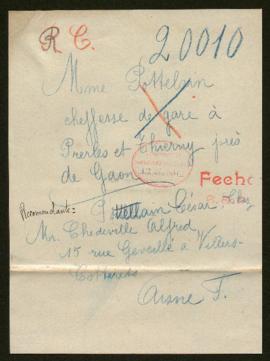 R C. 20010
Mme Pottelain
cheffesse de gare à
Presles et Thierny près
de Gaon
Fecho
Recommandante =
César
Mr. Chedeville Alfred
15 rue à Villers-
Cotterets
Aisne F.